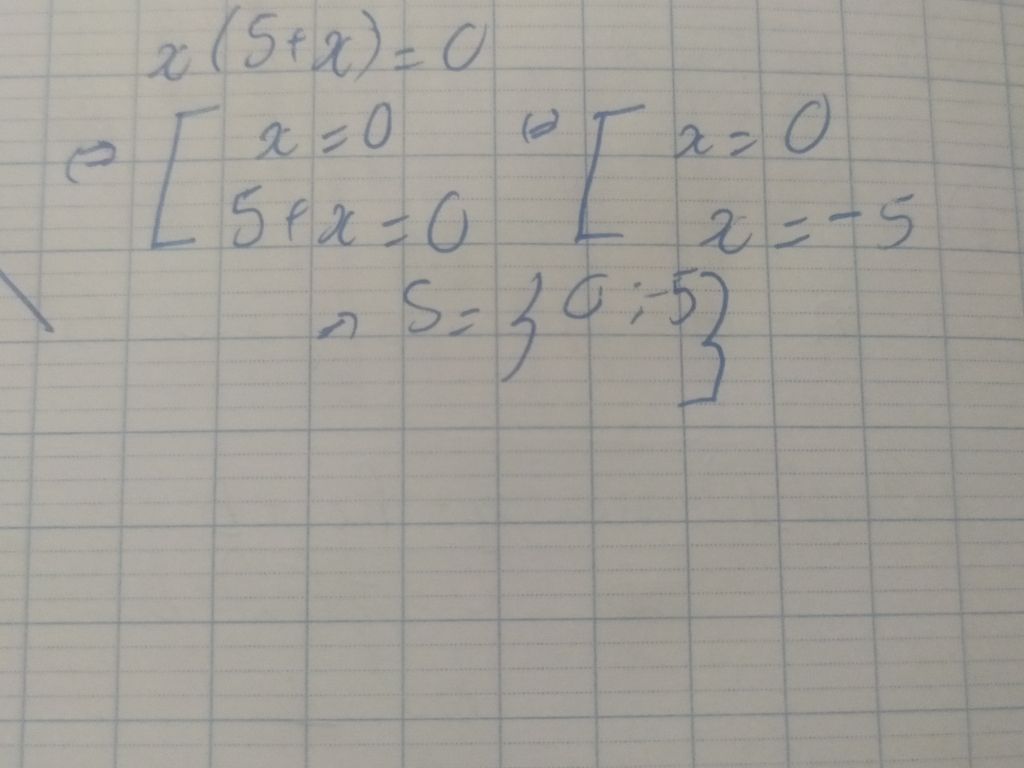 x(5+x)=0
⇔ [ x=0 ⇔ [ x=0
5+x=0 x=-5
→ S= }0;-5}